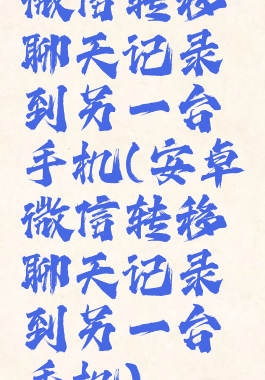 微信转移
聊天记录
到另一台
手机(安卓
微信转移
聊天记录
到另一台
手机)